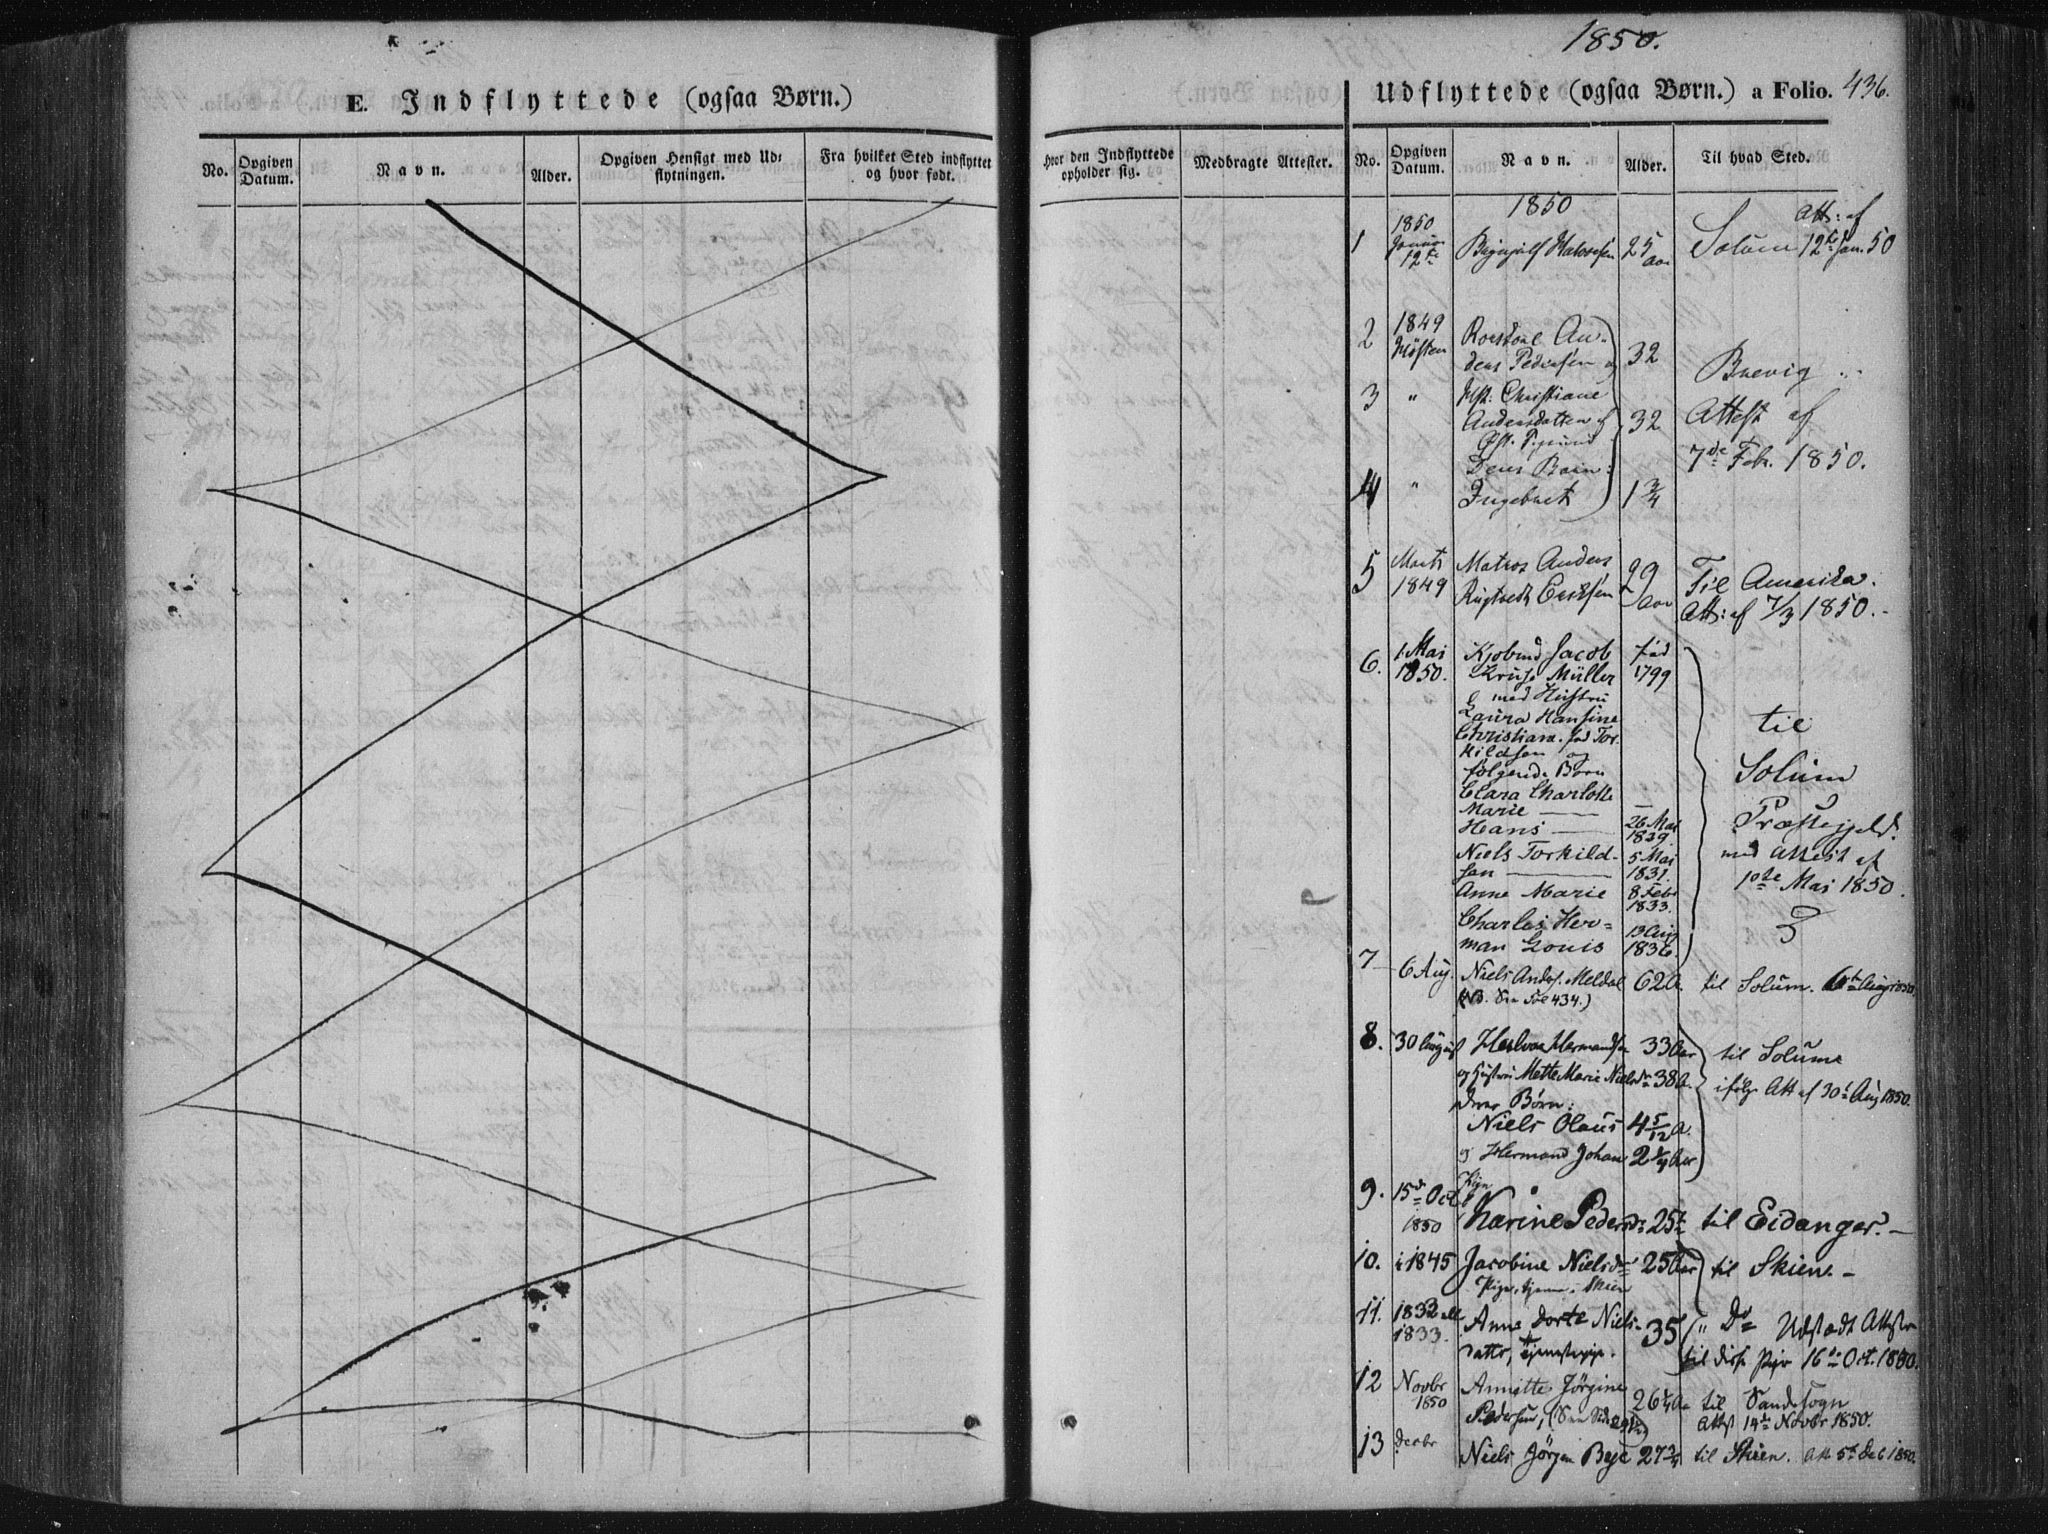 1850.
E. Indflyttede (ogsaa Børn.)
No.
Opgiven Datum.
Navn.
Alder.
Opgiven Hensigt med Udflytningen.
Fra hvilket Sted indflyttet og hvor født.
Hvor den Indflyttede opholder sig.
Medbragte Attester.
Udflyttede (ogsaa Børn.) a Folio. 436.
No.
Opgiven Datum.
Navn.
Alder.
Til hvad Sted.
1850
1 1850 Januar 12te 25 Aar Solum Att: af 12te Jan. 50
2 1849 Høsten An-
ders Pedersen og 32
3 " Hst: Christiane
Andersdatter af 32
Deres Barn:
4 " Ingebret 1 3/4
Brevig
Attest af
7de Feb. 1850.
5 Marts 1849 Matros Anders
Rugtvedt Eriksen 29 Aar
Til Amerika.
Att: af 7/3 1850.
6. 1. Mai 1850. Kjøbmd Jacob
Kruse Müller
født 1799
med Hustru
Laura Hansine
Christiana. fød Tor-
kildsen og
følgende Børn
Clara Charlotte
Marie —
Hans — 26 Mai 1829.
Niels Torkild-
sen — 5 Mai 1831.
Anne Marie 8 Febr 1833.
Charles Her-
man Louis 13 Aug 1836.
til
Solum
Præstegjeld.
med Attest af
1ste Mai 1850.
7 6 Aug. Niels Anders. Meldal 62 A. til Solum. 6te Aug 1850.
(NB. See Fol 434.)
8. 30 August Halvor Hermandsen 33 Aar
og Hustru Mette Marie Nielsdr 38 A.
deres Børn:
Niels Olaus 4 5/12 A.
og Hermand Johan 2 1/4 Aar
til Solum
ifølge Att af 30te Aug 1850.
9. 15de Oct 1850 Pige
Karine Pedersdr 25 til Eidanger. —
10. i 1845 Jacobine Nielsdr 25 Aar til Skien. —
Pige, tjener i Skien
11. 1832 el 1833. Anne Dorte Niels-
datter, tjenestepige. 35 " Do Udstedt Attester
til disse Piger 16de Oct. 1850.
12 Novbr 1850 Annette Jørgine
Pedersen, (See Side 26 1/4 A til Sandesogn
Attst 14de Novbr 1850.
13 Decbr Niels Jørgen Beje 27 3/4 til Skien. Att 5te Dec 1850.